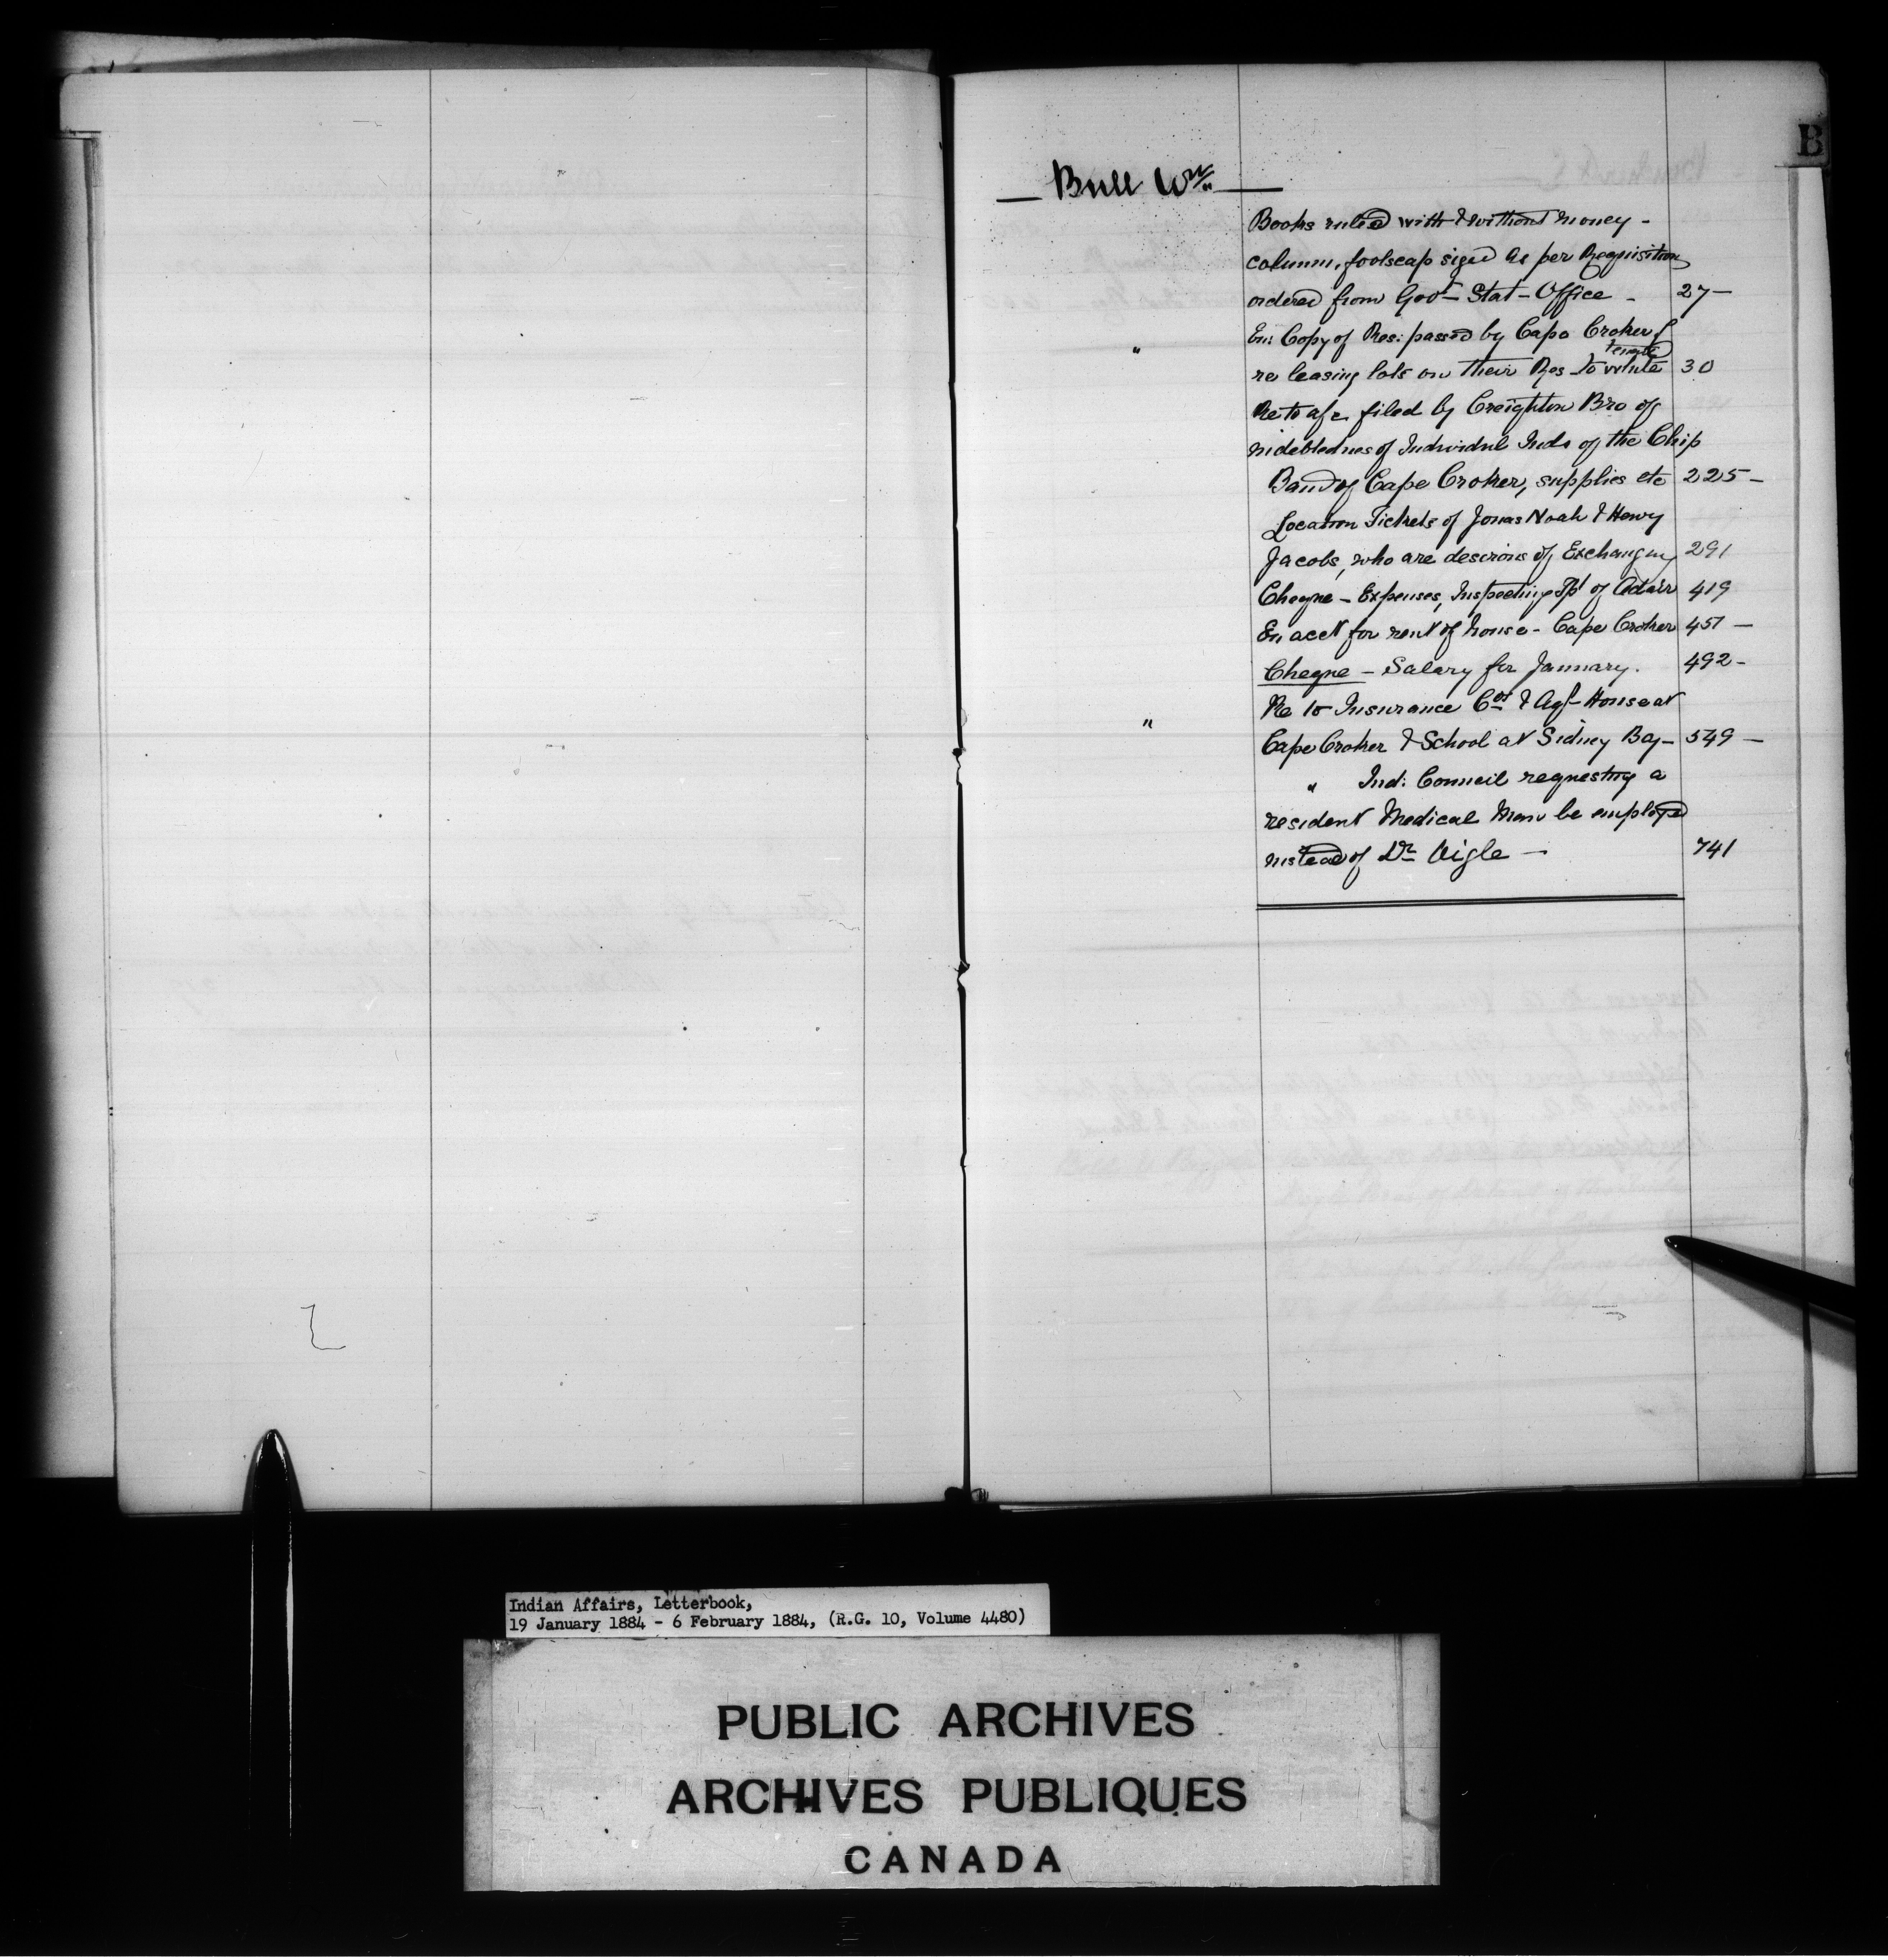 B
Bull Wm
Books ruled with & without money -
column, foolscap sized as per Requisition
ordered from Govt Stat- Office - 27-
" En: Copy of Res: passed by Cape Croker
tenants
re leasing lots on their Res to white 30
Re to a/c filed by Creighton Bro of
indebtednes of Individul Inds of the Chip
Band of Cape Croker, supplies etc 225-
Location Tickets of Jonas Noah & Henry
Jacobs, who are desirous of Exchanging 291
Chegne - Expenses, Inspecting Tp of Adair 419
En acct for rent of house - Cape Croker 451 -
Chegne - Salary for January. 492-
" Re to Insurance Cos & Agt House at
Cape Croker & School at Sidney Bay- 549 -
" Ind: Council requesting a
resident Medical Man be employed
instead of Dr Wigle - 741
Indian Affairs, Letterbook,
19 January 1884 - 6 February 1884, (R.G. 10, Volume 4480)
PUBLIC ARCHIVES
ARCHIVES PUBLIQUES
CANADA